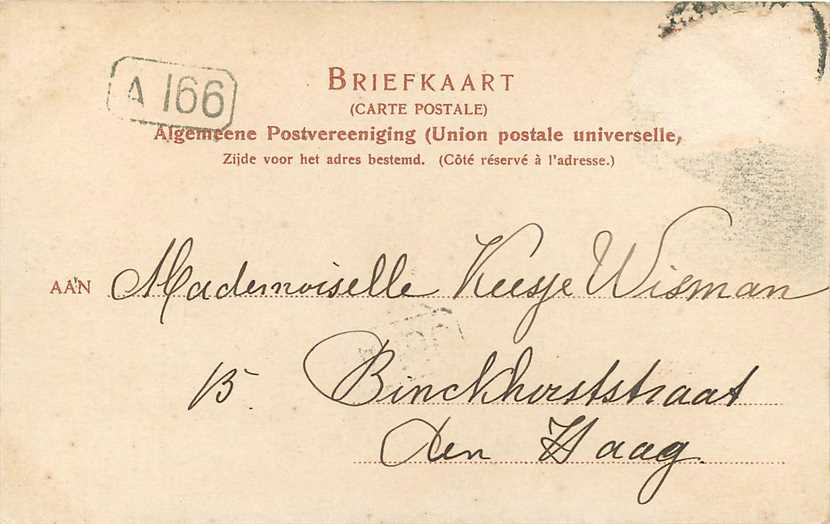 A 166
BRIEFKAART
(CARTE POSTALE)
Algemeene Postvereeniging (Union postale universelle)
Zijde voor het adres bestemd. (Côté réservé à l'adresse.)
AAN Mademoiselle Keesje Wisman
15. Binckhorststraat
Den Haag.